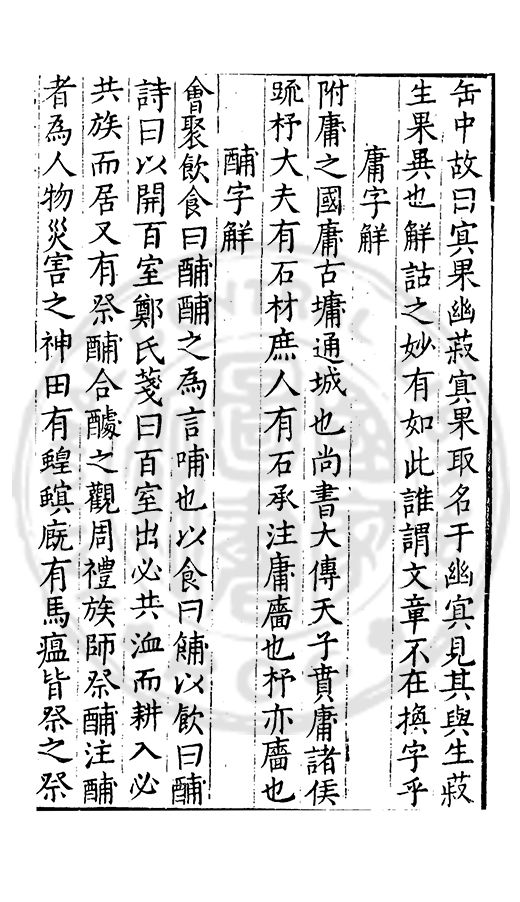 缶中故曰寘果幽菽寘果取名于幽寘見其與生菽
生果異也解詁之妙有如此誰謂文章不在換字乎
庸字解
附庸之國庸古墉通城也尚書大傳天子賁庸諸侯
䟽杼大夫有石材庶人有石承注庸廧也杼亦廧也
酺字解
會聚飲食曰酺酺之為言哺也以食曰餔以飲曰酺
詩曰以開百室鄭氏箋曰百室出必共洫而耕入必
共族而居又有祭酺合醵之觀周禮族師祭酺注酺
者為人物災害之神田有蝗螟廐有馬瘟皆祭之祭